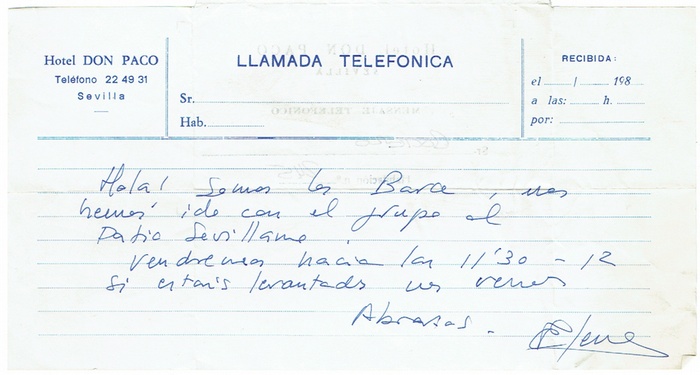 Hotel DON PACO
Teléfono 22 49 31
Sevilla
LLAMADA TELEFONICA
Sr.
Hab.
RECIBIDA:
el / 198
a las: h.
por:
Hola! Somos los Barce, nos
hemos ido con el grupo al
Patio Sevillano
Vendremos hacia las 11'30 - 12
Si estais levantados nos vemos
Abrazos. Elena